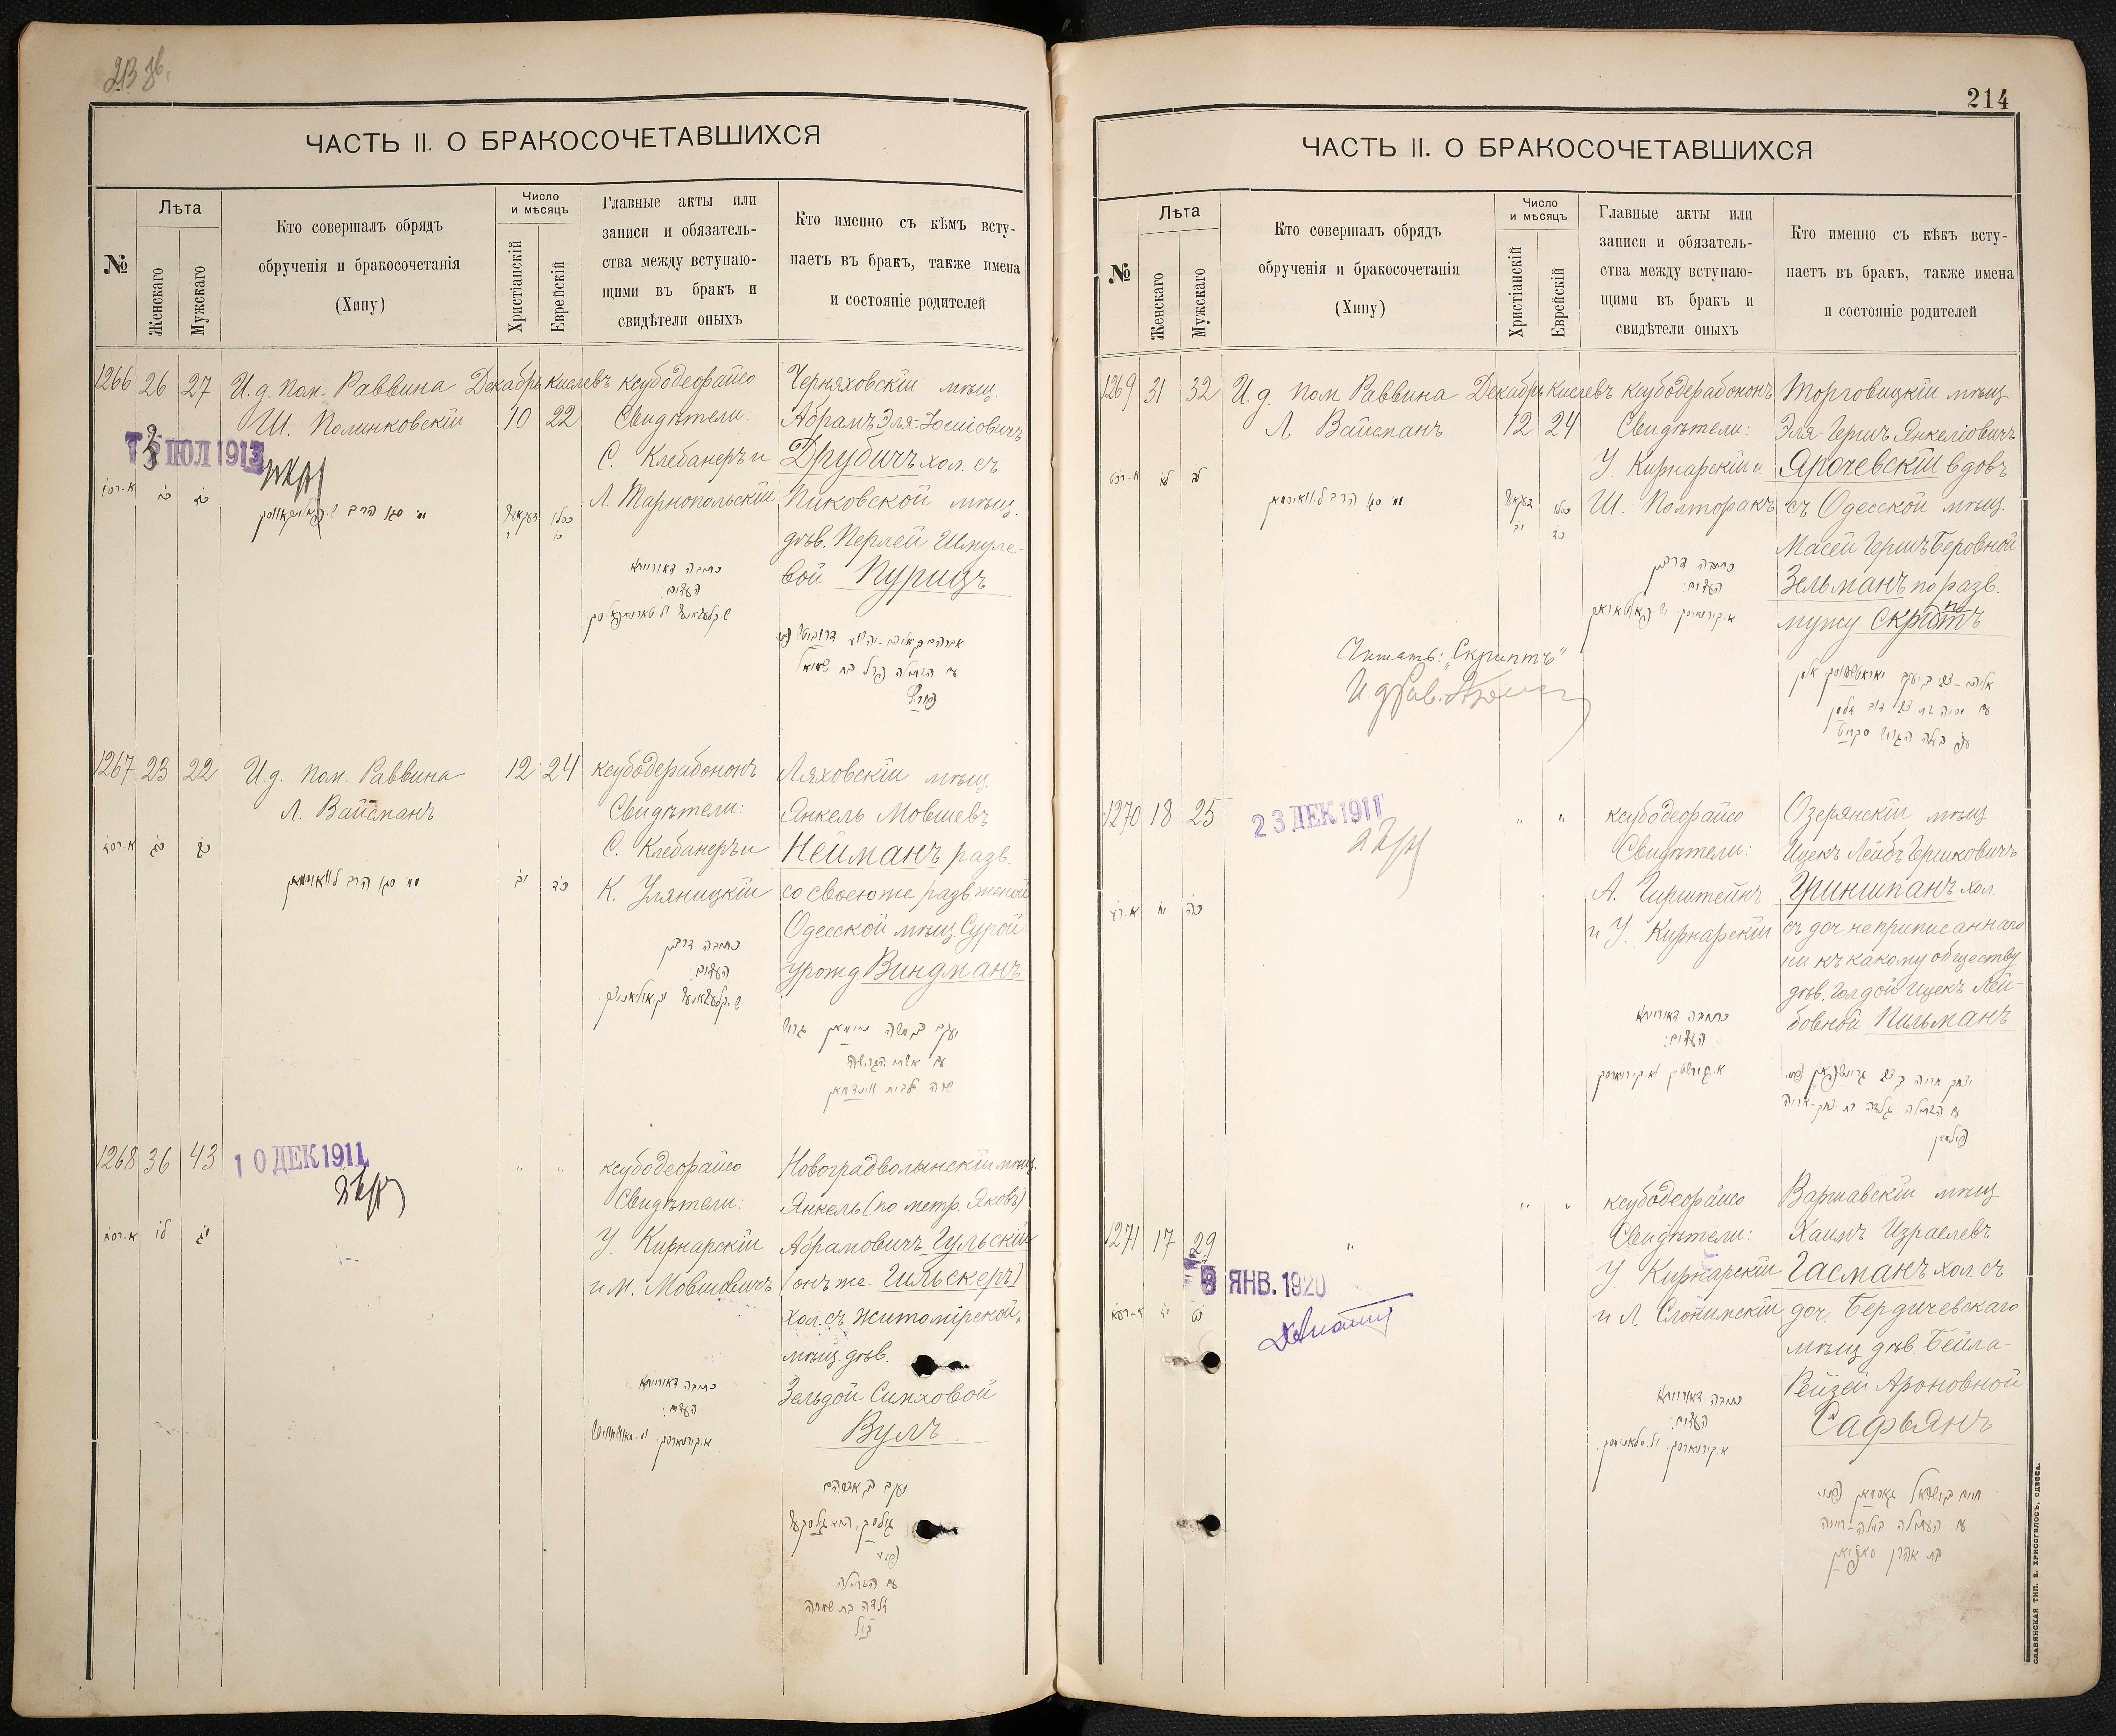 ЧАСТЬ II. О БРАКОСОЧЕТАВШИХСЯ
№
Лѣта
Женскаго
Мужскаго
Кто совершалъ обрядъ
обрученія и бракосочетанія
(Хипу)
Число
и мѣсяцъ
Христіанскій
Еврейскій
Главные акты или
записи и обязатель-
ства между вступаю-
щими въ бракъ и
свидѣтели оныхъ
Кто именно съ кѣмъ всту-
паетъ въ бракъ, также имена
и состояніе родителей
1266 26 27
И. д. пом. Раввина
Ш. Полинковскій
Декабрь Кислевъ
10 22
ксубодеорайсо
Свидѣтели:
С. Клебанеръ и
Л. Тарнопольскій
Черняховскій мѣщ.
Абрамъ Эля-Іосіовичъ
Друбичъ хол. съ
Пиковской мѣщ.
дѣв. Перлей Шмуле-
вой Пурицъ
כתובה דאורייתא
העדים:
1267 23 22
И. д. пом. Раввина
Л. Вайсманъ
12 24
ксубодерабононъ
Свидѣтели:
С. Клебанеръ и
К. Уляницкій
Ляховскій мѣщ
Янкель Мовшевъ
Нейманъ разв.
со своею же разв. женой
Одесской мѣщ. Сурой
урожд Виндманъ
כתובה דרבנן
העדים:
יעקב בן משה נוימאן גרוש
עם אשתו הגרושה
שרה לבית ווינדמאן
1268 36 43
10 ДЕК 1911
" "
ксубодеорайсо
Свидѣтели:
У. Кирнарскій
и М. Мовшовичъ
Новоградволынскій мѣщ.
Янкель (по метр. Яковъ)
Абрамовичъ Гульскій
(онъ же Гильскеръ)
хол. съ Житомірской
мѣщ. дѣв.
Зельдой Симховой
Вулъ
כתובה דאורייתא
העדים:
יעקב בן אברהם
עם הבתולה
זלדה בת שמחה
וול
214
ЧАСТЬ II. О БРАКОСОЧЕТАВШИХСЯ
№
Лѣта
Женскаго
Мужскаго
Кто совершалъ обрядъ
обрученія и бракосочетанія
(Хипу)
Число
и мѣсяцъ
Христіанскій
Еврейскій
Главные акты или
записи и обязатель-
ства между вступаю-
щими въ бракъ и
свидѣтели оныхъ
Кто именно съ кѣкъ всту-
паетъ въ бракъ, также имена
и состояніе родителей
1269 31 32
И. д. пом Раввина
Л Вайсманъ
Декабрь Кислевъ
12 24
ксубодерабононъ
Свидѣтели:
У. Кирнарскій и
Ш. Полторакъ
Торговицкій мѣщ.
Эля-Гершъ Янкеліовичъ
Ярочевскій вдовъ
съ Одесской мѣщ.
Масей Гершъ Беровной
Зельманъ по разв.
мужу Скриптъ
כתובה דרבנן
העדים:
Читать: „Скриптъ"
1270 18 25
23 ДЕК 1911
" "
ксубодеорайсо
Свидѣтели:
А. Гирштейнъ
и У. Кирнарскій
Озерянскій мѣщ
Ицекъ Лейбъ Гершковичъ
Гриншпанъ хол.
съ доч. неприписаннаго
ни къ какому обществу
дѣв. Голдой Ицекъ Лей-
бовной Пильманъ
כתובה דאורייתא
העדים:
1271 17 29
"
ЯНВ. 1920
" "
ксубодеорайсо
Свидѣтели:
У Кирнарскій
и Л. Слонимскій
Варшавскій мѣщ
Хаимъ Израелевъ
Гасманъ хол съ
доч. Бердичевскаго
мѣщ дѣв. Бейла-
Рейзей Ароновной
Сафьянъ
כתובה דאורייתא
העדים:
חיים בן ישראל גאסמאן פנוי
עם הבתולה ביילה-רייזה
בת אהרן סאפיאן
СЛАВЯНСКАЯ ТИП. Е. ХРИСОГЕЛОСЪ, ОДЕССА.